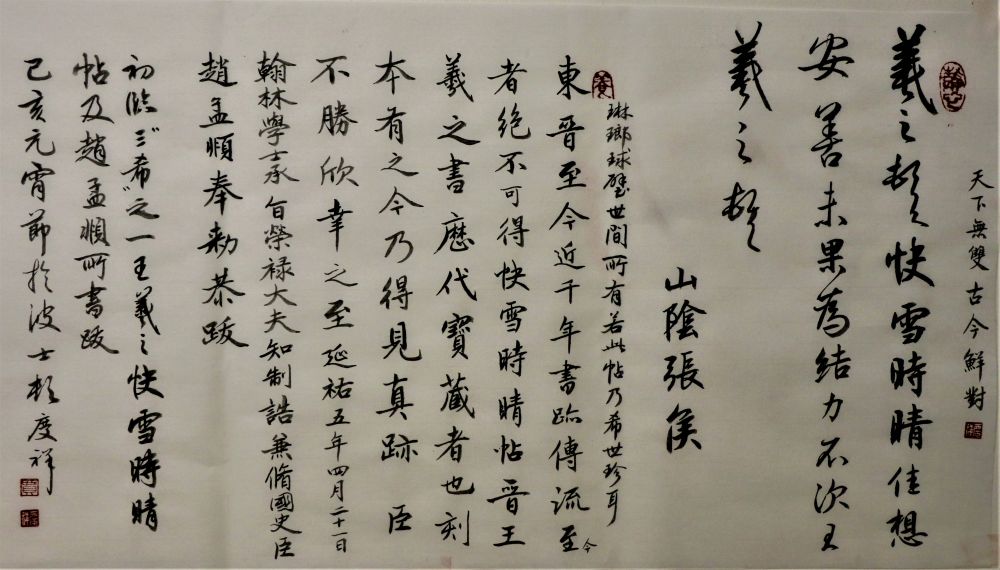 天下無雙古今鮮對
羲之頓首快雪時晴佳想
安善未果為結力不次王
羲之頓首
山陰張侯
琳瑯球璧世間所有若此帖乃希世珍耳
東晉至今近千年書跡傳流至今
者絕不可得快雪時晴帖晉王
羲之書歷代寶藏者也刻
本有之今乃得見真跡臣
不勝欣幸之至延祐五年四月二十一日
翰林學士承旨榮祿大夫知制誥兼脩國史臣
趙孟頫奉勑恭跋
初臨"三希"之一王羲之快雪時晴
帖及趙孟頫所書跋
己亥元宵節於波士頓慶祥